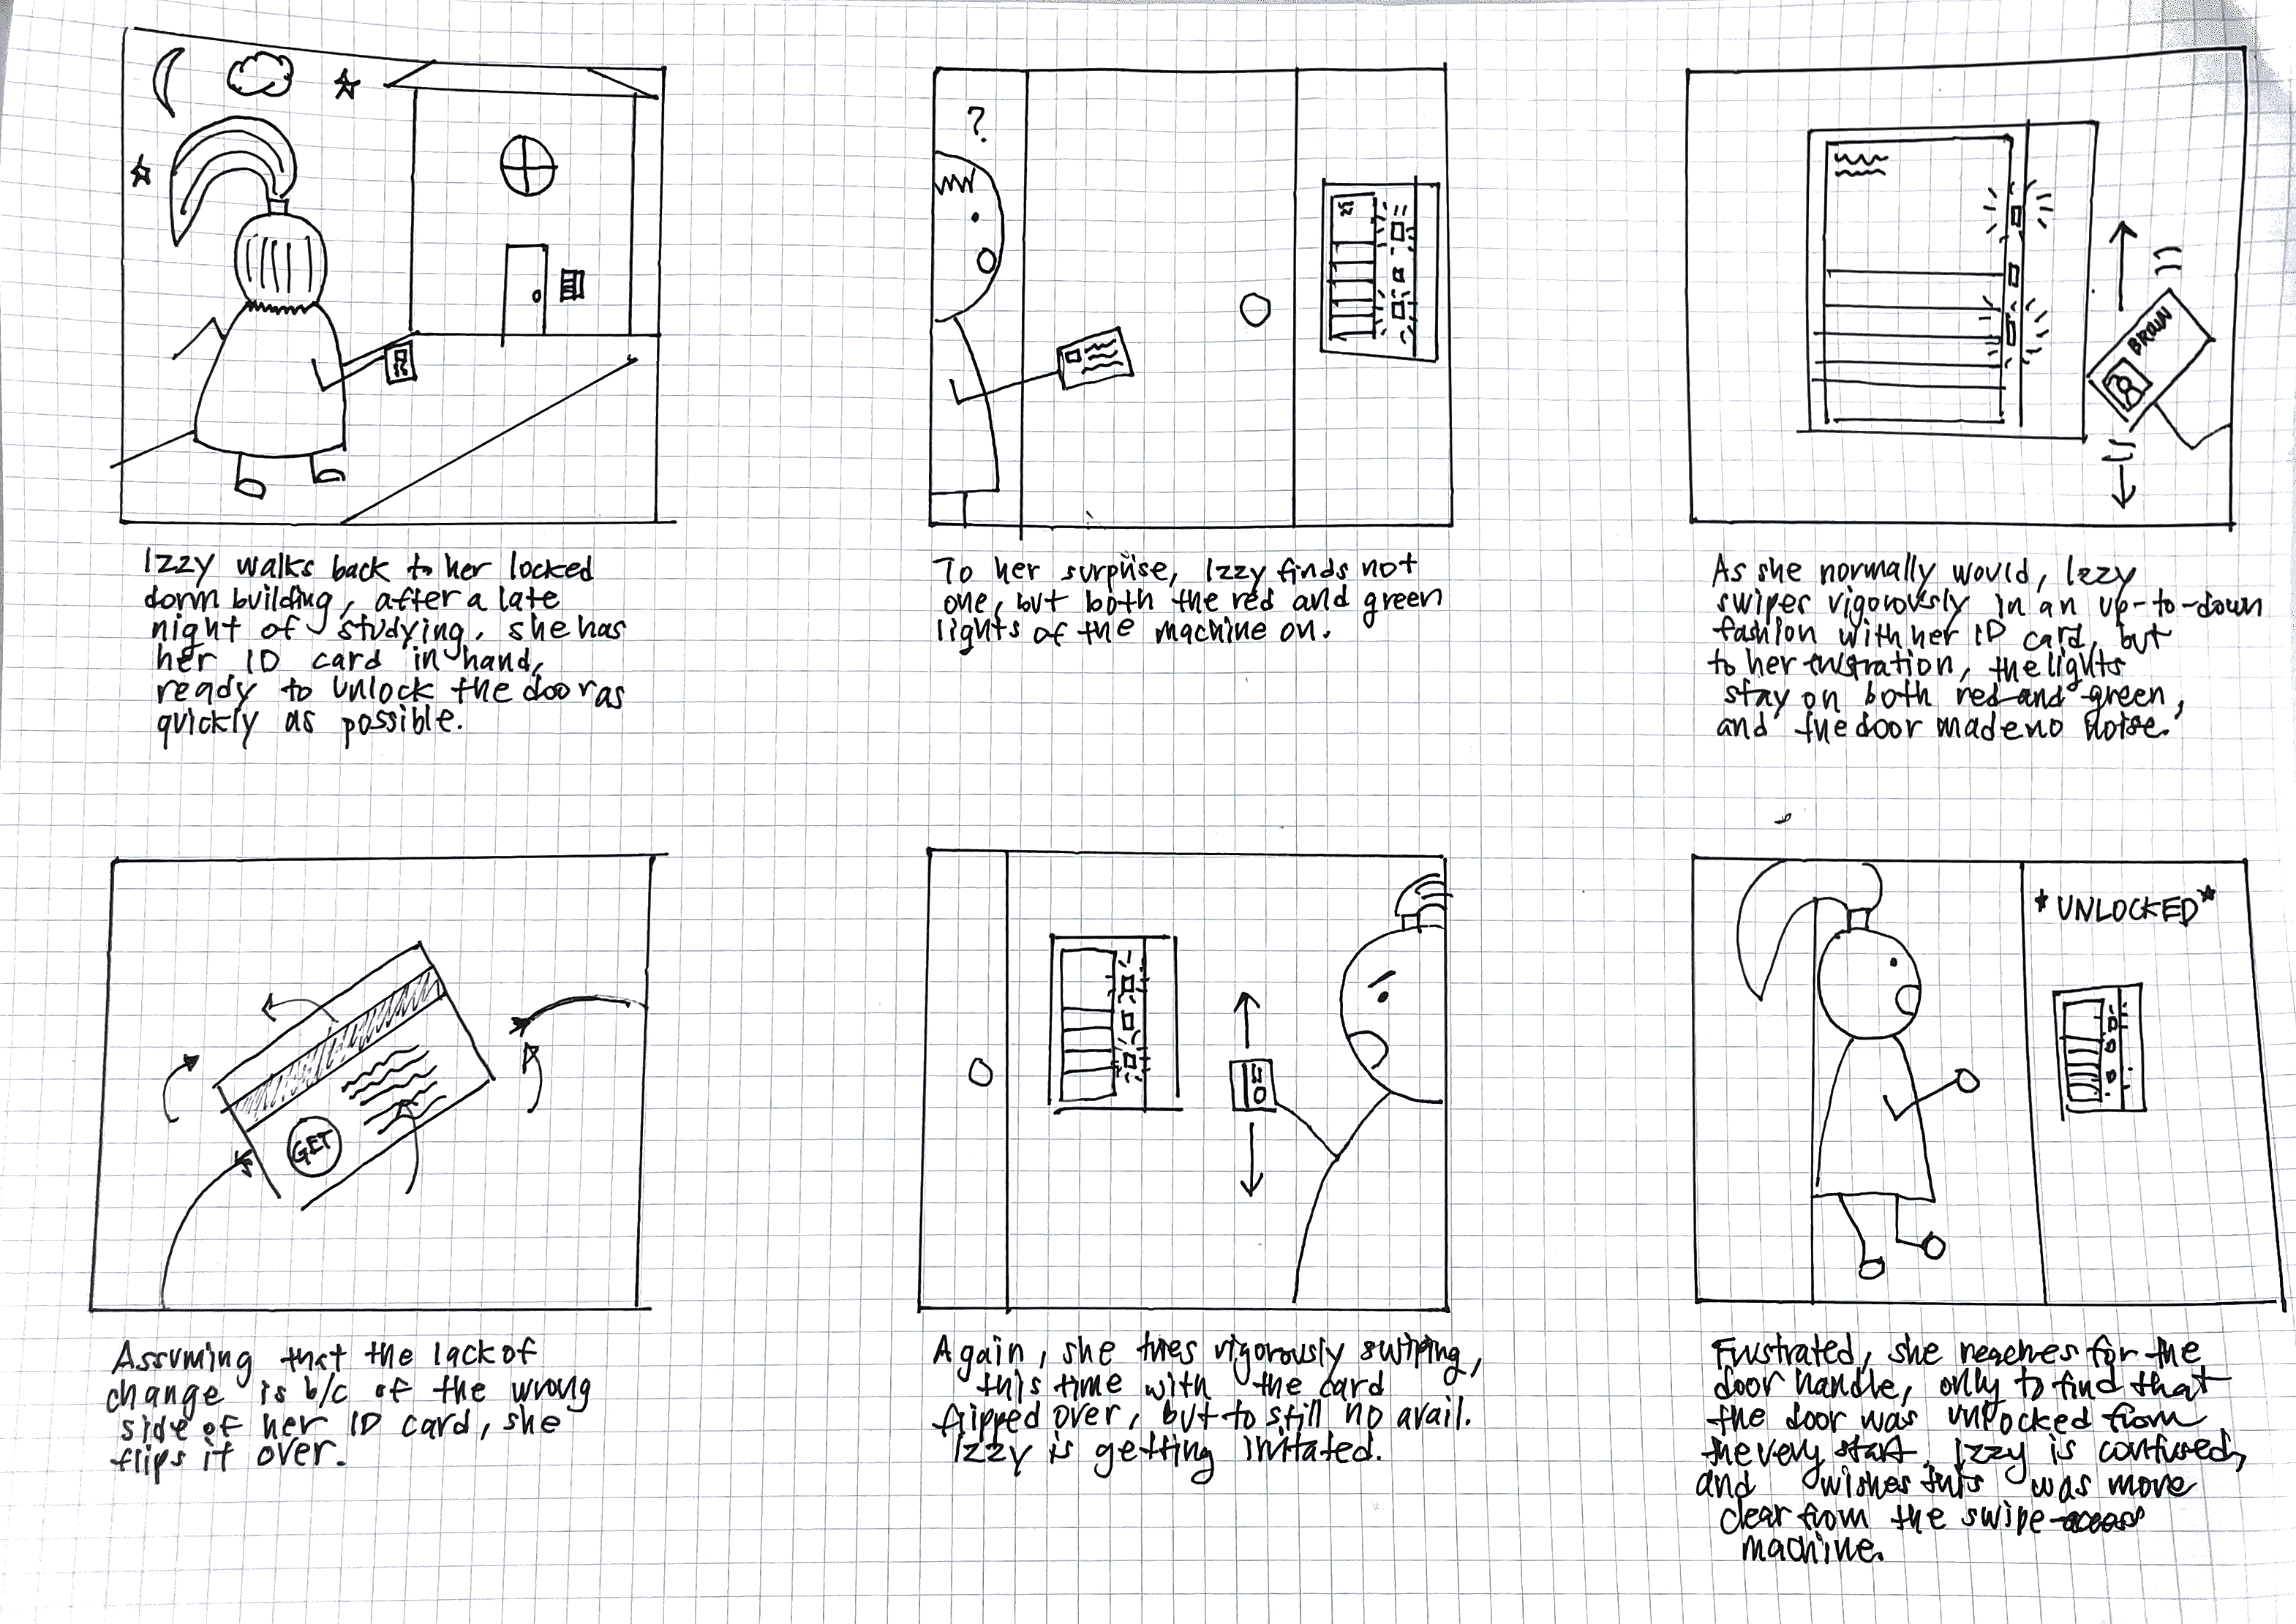 Izzy walks back to her locked
dorm building, after a late
night of studying. she has
her ID card in hand,
ready to unlock the door as
quickly as possible.
?
To her surprise, Izzy finds not
one, but both the red and green
lights of the machine on.
BROWN
As she normally would, Izzy
swipes vigorously in an up-to-down
fashion with her ID card, but
to her frustration, the lights
stay on both red and green,
and the door made no noise.
GET
Assuming that the lack of
change is b/c of the wrong
side of her ID card, she
flips it over.
Again, she tries rigorously swiping,
this time with the card
flipped over, but to still no avail.
Izzy is getting irritated.
*UNLOCKED*
Frustrated, she reaches for the
door handle, only to find that
the door was unlocked from
the very start. Izzy is confused,
and wishes this was more
clear from the swipe-access
machine.